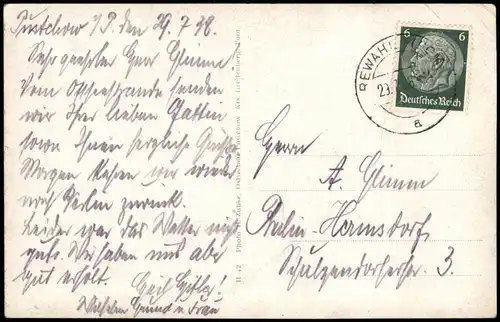 Pustchow i/P. den 29.7.38.
Sehr geehrter Herr Glimm
Vom Ostseestrande senden
wir Ihrer lieben Gattin
sowie Ihnen herzliche Grüße
Morgen kehren wir wieder
nach Berlin zurück.
Leider war das Wetter nicht
gut. Wir haben uns aber
gut erholt.
Heil Hitler!
Wilhelm Grund u. Frau
H 47 Photo
REWAHL
a
6 6
Deutsches Reich
Herrn
A. Glimm
Berlin-Hermsdorf.
3.